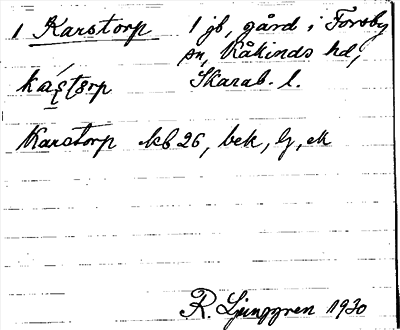 1 Karstorp 1 jb, gård i Forsby
sn, Kåkinds hd,
Skarab. l.
Karstorp kb 26, bek, lj, ek
R. Ljunggren 1930